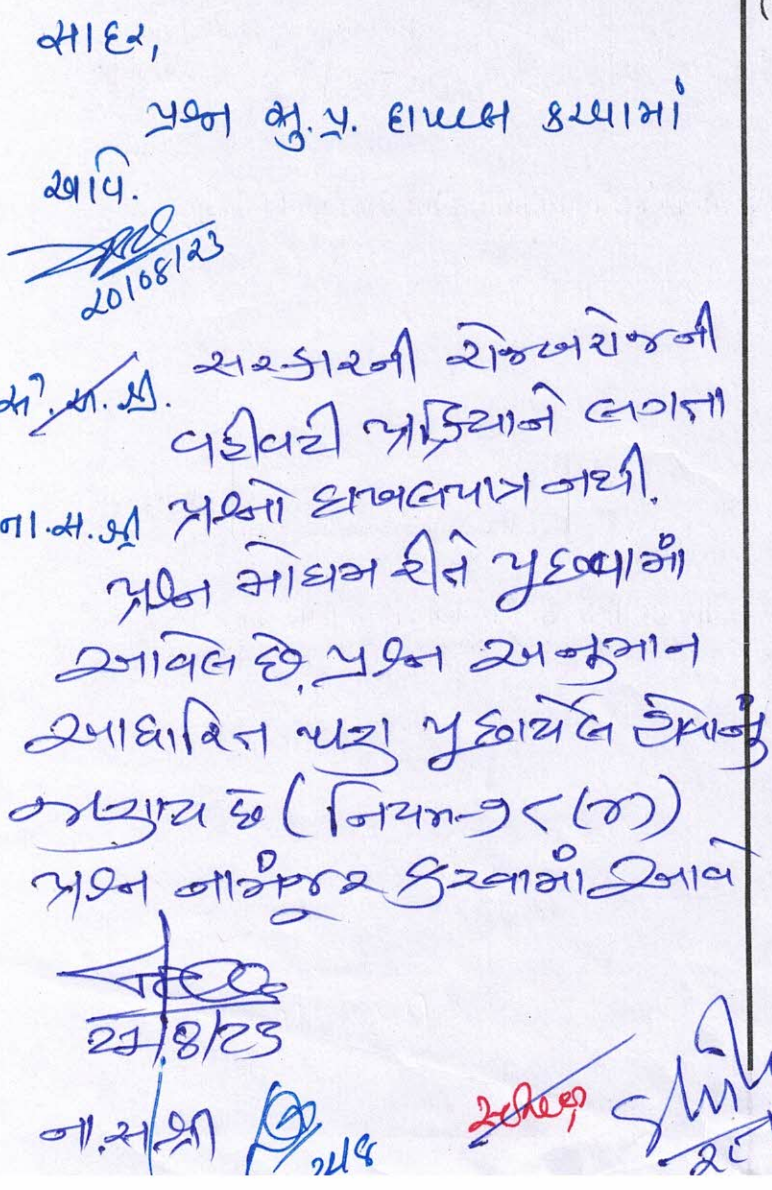 સાદર,
પ્રશ્ન મુ.પ્ર. દાખલ કરવામાં
આવે.
20/08/23
સરકારની રોજબરોજની
સં.સ.શ્રી.
વહીવટી પ્રક્રિયાને લગતા
ના.સ.શ્રી
પ્રશ્નો દાખલપાત્ર નથી.
પ્રશ્ન મોઘમ રીતે પુછવામાં
આવેલ છે. પ્રશ્ન અનુમાન
આધારિત પણ પુછાયેલ હોવાનું
જણાય છે (નિયમ-૭૮(૪))
પ્રશ્ન નામંજૂર કરવામાં આવે
21/8/23
ના.સ.શ્રી